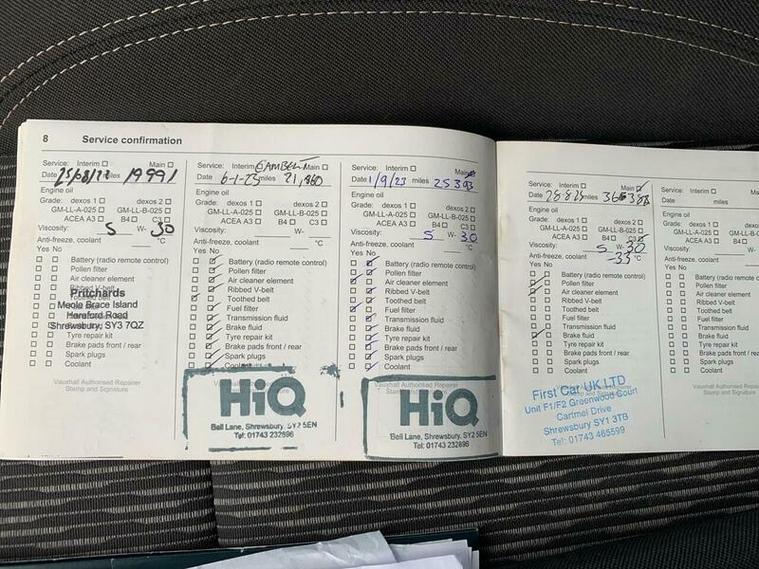 8 Service confirmation
Service: Interim ☐ Main ☐
Date miles 19991
Engine oil
Grade: dexos 1 ☐ dexos 2 ☐
GM-LL-A-025 ☐ GM-LL-B-025 ☐
ACEA A3 ☐ B4 ☐ C3 ☐
Viscosity: 5 W- 30
Anti-freeze, coolant °C
Yes No
Battery (radio remote control)
Pollen filter
Air cleaner element
Ribbed V-belt
Pritchards
Meole Brace Island
Hereford Road
Shrewsbury, SY3 7QZ
Brake fluid
Tyre repair kit
Brake pads front / rear
Spark plugs
Coolant
Vauxhall Authorised Repairer
Stamp and Signature
Service: Interim CAMBELT Main ☐
Date 6-1-23 miles 21,860
Engine oil
Grade: dexos 1 ☐ dexos 2 ☐
GM-LL-A-025 ☐ GM-LL-B-025 ☐
ACEA A3 ☐ B4 ☐ C3 ☐
Viscosity: W-
Anti-freeze, coolant °C
Yes No
Battery (radio remote control)
Pollen filter
Air cleaner element
Ribbed V-belt
Toothed belt
Fuel filter
Transmission fluid
Brake fluid
Tyre repair kit
Brake pads front / rear
Spark plugs
Coolant
HiQ
Bell Lane, Shrewsbury, SY2 5EN
Tel: 01743 232896
Service: Interim ☐ Main
Date 1/9/23 miles 25393
Engine oil
Grade: dexos 1 ☐ dexos 2 ☐
GM-LL-A-025 ☐ GM-LL-B-025 ☐
ACEA A3 ☐ B4 ☐ C3 ☐
Viscosity: 5 W- 30
Anti-freeze, coolant °C
Yes No
Battery (radio remote control)
Pollen filter
Air cleaner element
Ribbed V-belt
Toothed belt
Fuel filter
Transmission fluid
Brake fluid
Tyre repair kit
Brake pads front / rear
Spark plugs
Coolant
Vauxhall Authorised Repairer
HiQ
Bell Lane, Shrewsbury, SY2 5EN
Tel: 01743 232896
Service: Interim ☐ Main
Date 28825 miles
Engine oil
Grade: dexos 1 ☐ dexos 2 ☐
GM-LL-A-025 ☐ GM-LL-B-025 ☐
ACEA A3 ☐ B4 ☐ C3
Viscosity: 5 W- 30
Anti-freeze, coolant -33 °C
Yes No
Battery (radio remote control)
Pollen filter
Air cleaner element
Ribbed V-belt
Toothed belt
Fuel filter
Transmission fluid
Brake fluid
Tyre repair kit
Brake pads front / rear
Spark plugs
Coolant
First Car UK LTD
Unit F1/F2 Greenwood Court
Cartmel Drive
Shrewsbury SY1 3TB
Tel: 01743 465599
Service: Interim ☐
Date miles
Engine oil
Grade: dexos 1 ☐
GM-LL-A-025 ☐ GM-LL-
ACEA A3 ☐ B4 ☐
Viscosity: W-
Anti-freeze, coolant
Yes No
Battery (radio remote c
Pollen filter
Air cleaner element
Ribbed V-belt
Toothed belt
Fuel filter
Transmission fluid
Brake fluid
Tyre repair kit
Brake pads front / rear
Spark plugs
Coolant
Vauxhall Authorised Repai
Stamp and Signature